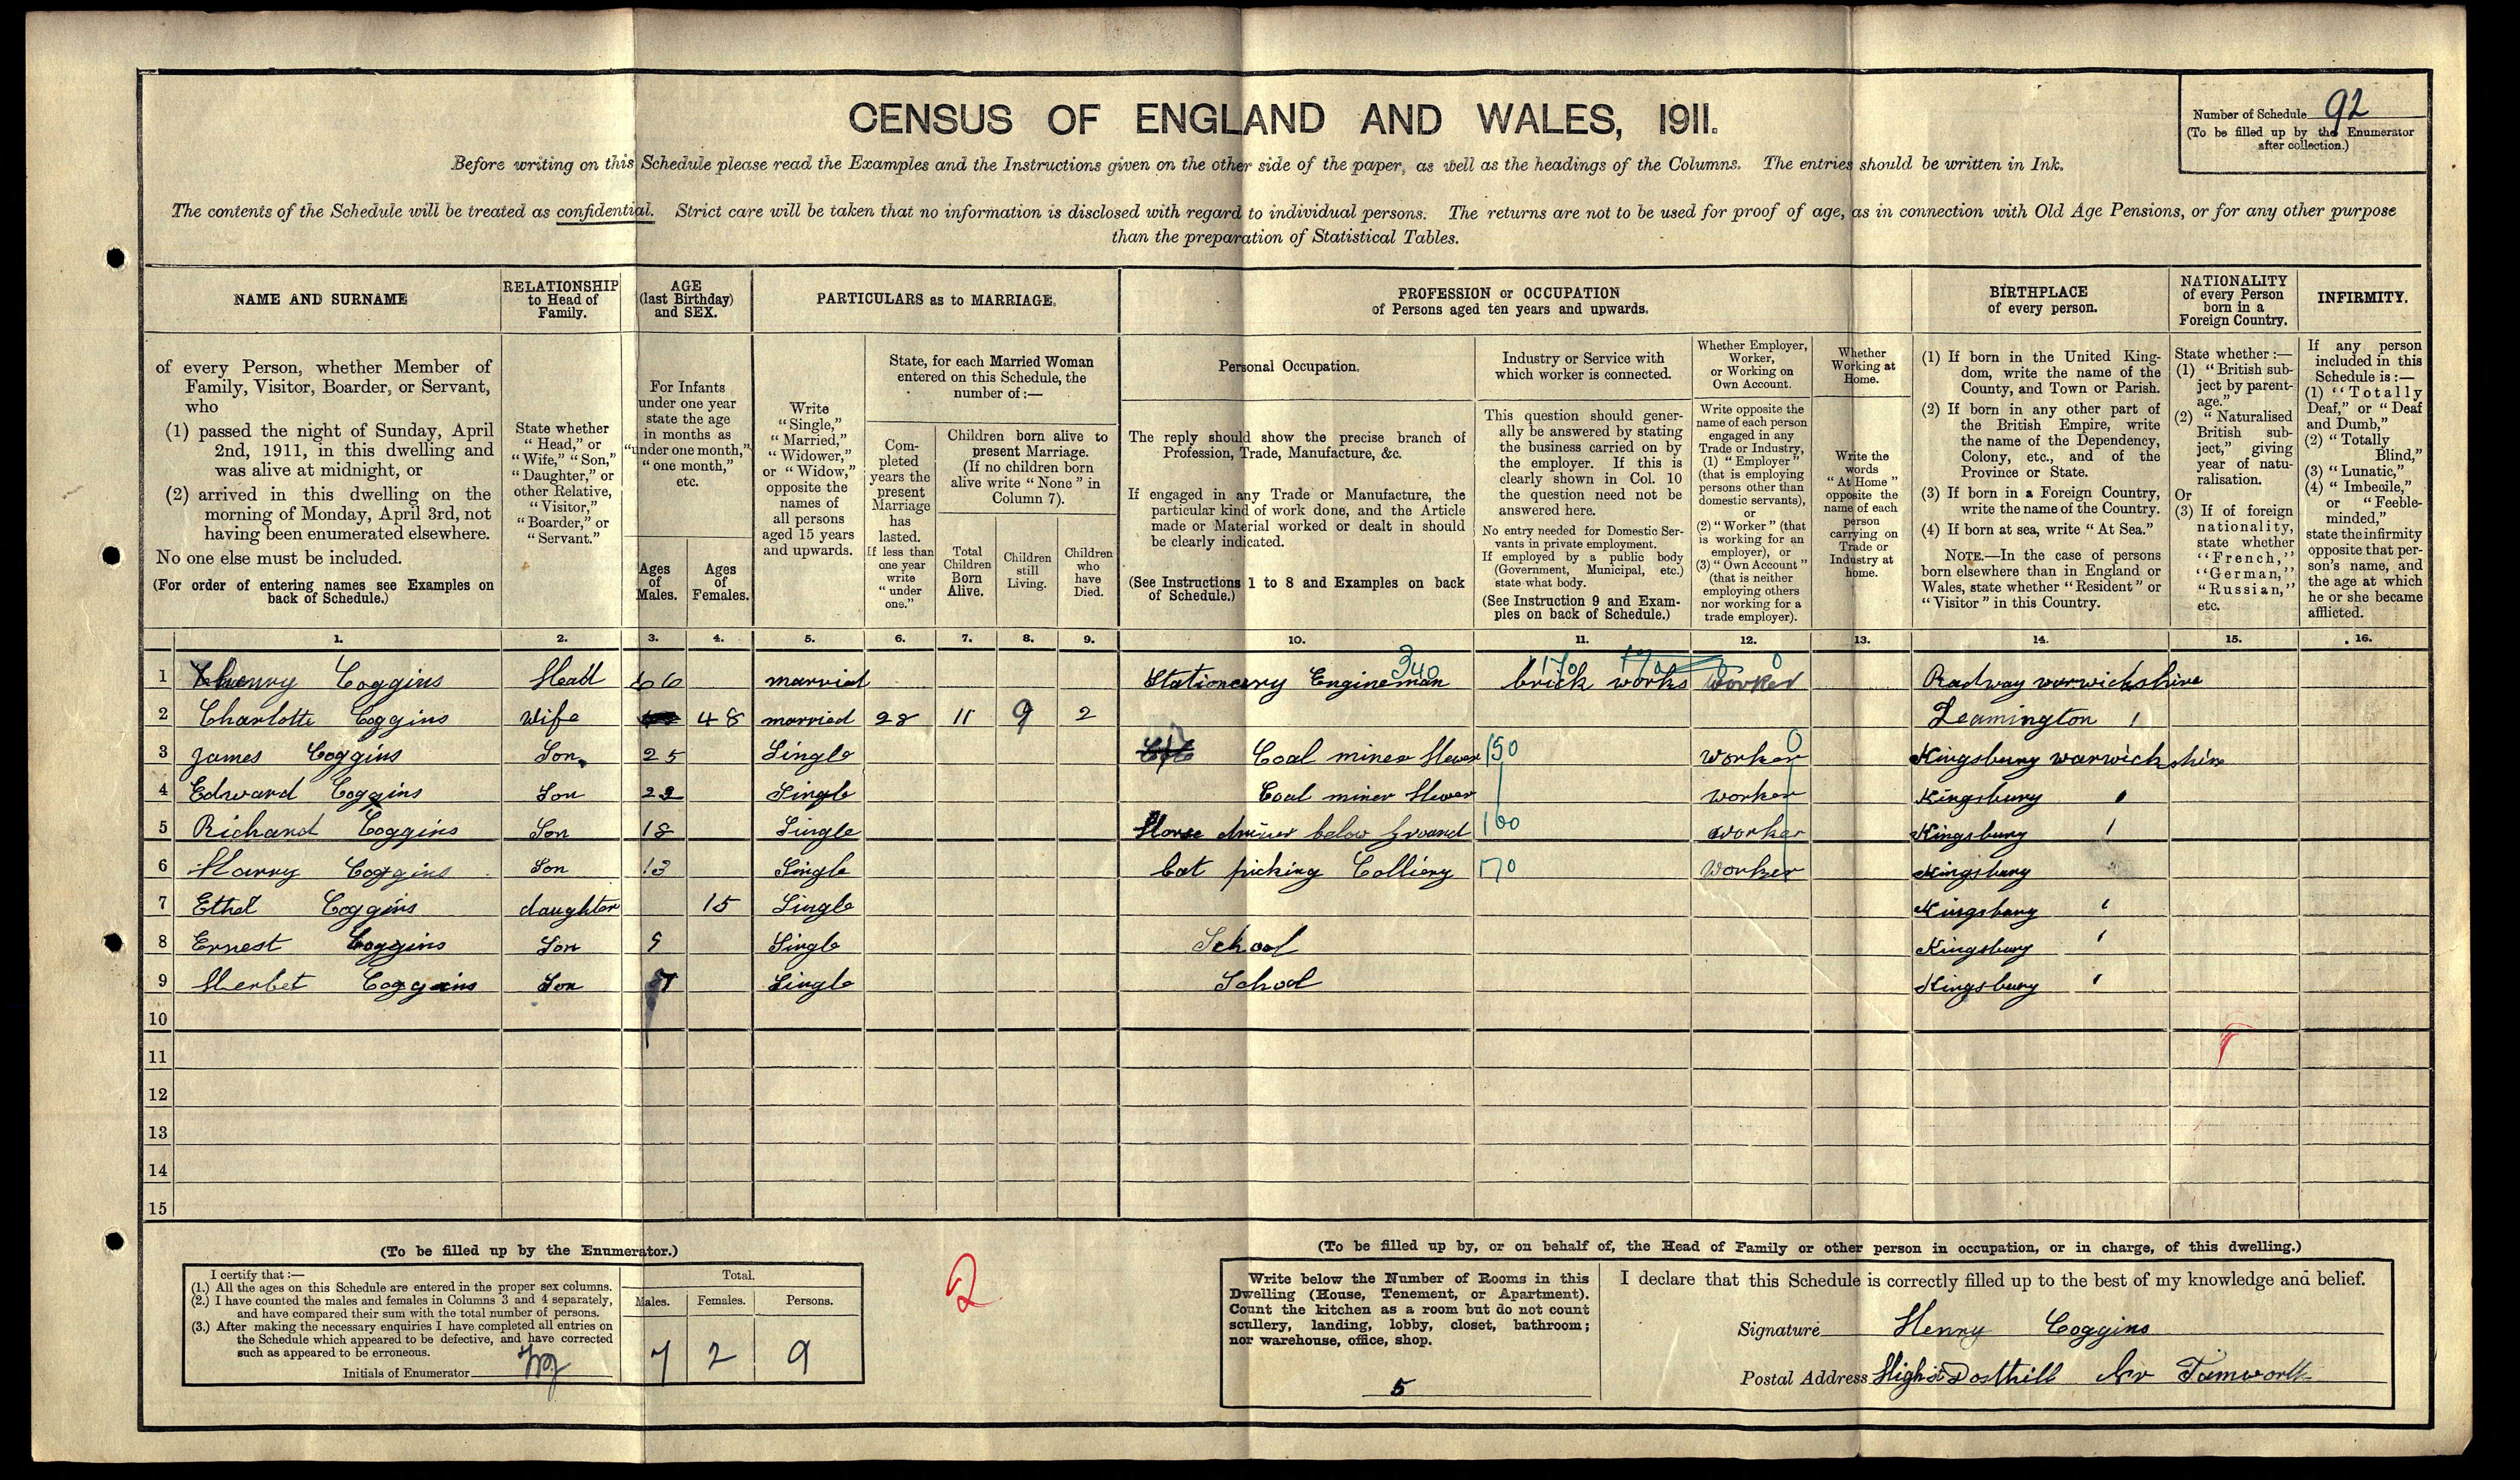 CENSUS OF ENGLAND AND WALES, 1911.
Number of Schedule 92
(To be filled up by the Enumerator
after collection.)
Before writing on this Schedule please read the Examples and the Instructions given on the other side of the paper, as well as the headings of the Columns. The entries should be written in Ink.
The contents of the Schedule will be treated as confidential. Strict care will be taken that no information is disclosed with regard to individual persons. The returns are not to be used for proof of age, as in connection with Old Age Pensions, or for any other purpose
than the preparation of Statistical Tables.
NAME AND SURNAME
of every Person, whether Member of
Family, Visitor, Boarder, or Servant,
who
(1) passed the night of Sunday, April
2nd, 1911, in this dwelling and
was alive at midnight, or
(2) arrived in this dwelling on the
morning of Monday, April 3rd, not
having been enumerated elsewhere.
No one else must be included.
(For order of entering names see Examples on
back of Schedule.)
RELATIONSHIP
to Head of
Family.
State whether
"Head," or
"Wife," "Son,"
"Daughter," or
other Relative,
"Visitor,"
"Boarder," or
"Servant."
AGE
(last Birthday)
and SEX.
For Infants
under one year
state the age
in months as
"under one month,"
"one month,"
etc.
Ages
of
Males.
Ages
of
Females.
PARTICULARS as to MARRIAGE.
Write
"Single,"
"Married,"
"Widower,"
or "Widow,"
opposite the
names of
all persons
aged 15 years
and upwards.
State, for each Married Woman
entered on this Schedule, the
number of:—
Com-
pleted
years the
present
Marriage
has
lasted.
If less than
one year
write
"under
one."
Children born alive to
present Marriage.
(If no children born
alive write "None" in
Column 7).
Total
Children
Born
Alive.
Children
still
Living.
Children
who
have
Died.
PROFESSION or OCCUPATION
of Persons aged ten years and upwards.
Personal Occupation.
The reply should show the precise branch of
Profession, Trade, Manufacture, &c.
If engaged in any Trade or Manufacture, the
particular kind of work done, and the Article
made or Material worked or dealt in should
be clearly indicated.
(See Instructions 1 to 8 and Examples on back
of Schedule.)
Industry or Service with
which worker is connected.
This question should gener-
ally be answered by stating
the business carried on by
the employer. If this is
clearly shown in Col. 10
the question need not be
answered here.
No entry needed for Domestic Ser-
vants in private employment.
If employed by a public body
(Government, Municipal, etc.)
state what body.
(See Instruction 9 and Exam-
ples on back of Schedule.)
Whether Employer,
Worker,
or Working on
Own Account.
Write opposite the
name of each person
engaged in any
Trade or Industry,
(1) "Employer"
(that is employing
persons other than
domestic servants),
or
(2) "Worker" (that
is working for an
employer), or
(3) "Own Account"
(that is neither
employing others
nor working for a
trade employer).
Whether
Working at
Home.
Write the
words
"At Home"
opposite the
name of each
person
carrying on
Trade or
Industry at
home.
BIRTHPLACE
of every person.
(1) If born in the United King-
dom, write the name of the
County, and Town or Parish.
(2) If born in any other part of
the British Empire, write
the name of the Dependency,
Colony, etc., and of the
Province or State.
(3) If born in a Foreign Country,
write the name of the Country.
(4) If born at sea, write "At Sea."
NOTE.—In the case of persons
born elsewhere than in England or
Wales, state whether "Resident" or
"Visitor" in this Country.
NATIONALITY
of every Person
born in a
Foreign Country.
State whether:—
(1) "British sub-
ject by parent-
age."
(2) "Naturalised
British sub-
ject," giving
year of natu-
ralisation.
Or
(3) If of foreign
nationality,
state whether
"French,"
"German,"
"Russian,"
etc.
INFIRMITY.
If any person
included in this
Schedule is:—
(1) "Totally
Deaf," or "Deaf
and Dumb,"
(2) "Totally
Blind,"
(3) "Lunatic,"
(4) "Imbecile,"
or "Feeble-
minded,"
state the infirmity
opposite that per-
son's name, and
the age at which
he or she became
afflicted.
1. 2. 3. 4. 5. 6. 7. 8. 9. 10. 11. 12. 13. 14. 15. 16.
1 Henry Coggins Head 66 married Stationery Engineman 340 brick works worker 0 Radway warwickshire
2 Charlotte Coggins Wife 48 married 28 11 9 2 Leamington "
3 James Coggins Son 25 Single Coal miner Hewer 150 worker 0 Kingsbury warwickshire
4 Edward Coggins Son 22 Single Coal miner Hewer worker Kingsbury "
5 Richard Coggins Son 18 Single Horse driver below ground 160 worker Kingsbury "
6 Harry Coggins Son 13 Single bat picking Colliery 170 Worker Kingsbury
7 Ethel Coggins daughter 15 Single Kingsbury "
8 Ernest Coggins Son 9 Single School Kingsbury "
9 Herbet Coggins Son 7 Single School Kingsbury "
10
11
12
13
14
15
(To be filled up by the Enumerator.)
I certify that:—
(1.) All the ages on this Schedule are entered in the proper sex columns.
(2.) I have counted the males and females in Columns 3 and 4 separately,
and have compared their sum with the total number of persons.
(3.) After making the necessary enquiries I have completed all entries on
the Schedule which appeared to be defective, and have corrected
such as appeared to be erroneous.
Initials of Enumerator
Total.
Males. Females. Persons.
7 2 9
(To be filled up by, or on behalf of, the Head of Family or other person in occupation, or in charge, of this dwelling.)
Write below the Number of Rooms in this
Dwelling (House, Tenement, or Apartment).
Count the kitchen as a room but do not count
scullery, landing, lobby, closet, bathroom;
nor warehouse, office, shop.
5
I declare that this Schedule is correctly filled up to the best of my knowledge and belief.
Signature Henry Coggins
Postal Address High St Dosthill Nr Tamworth